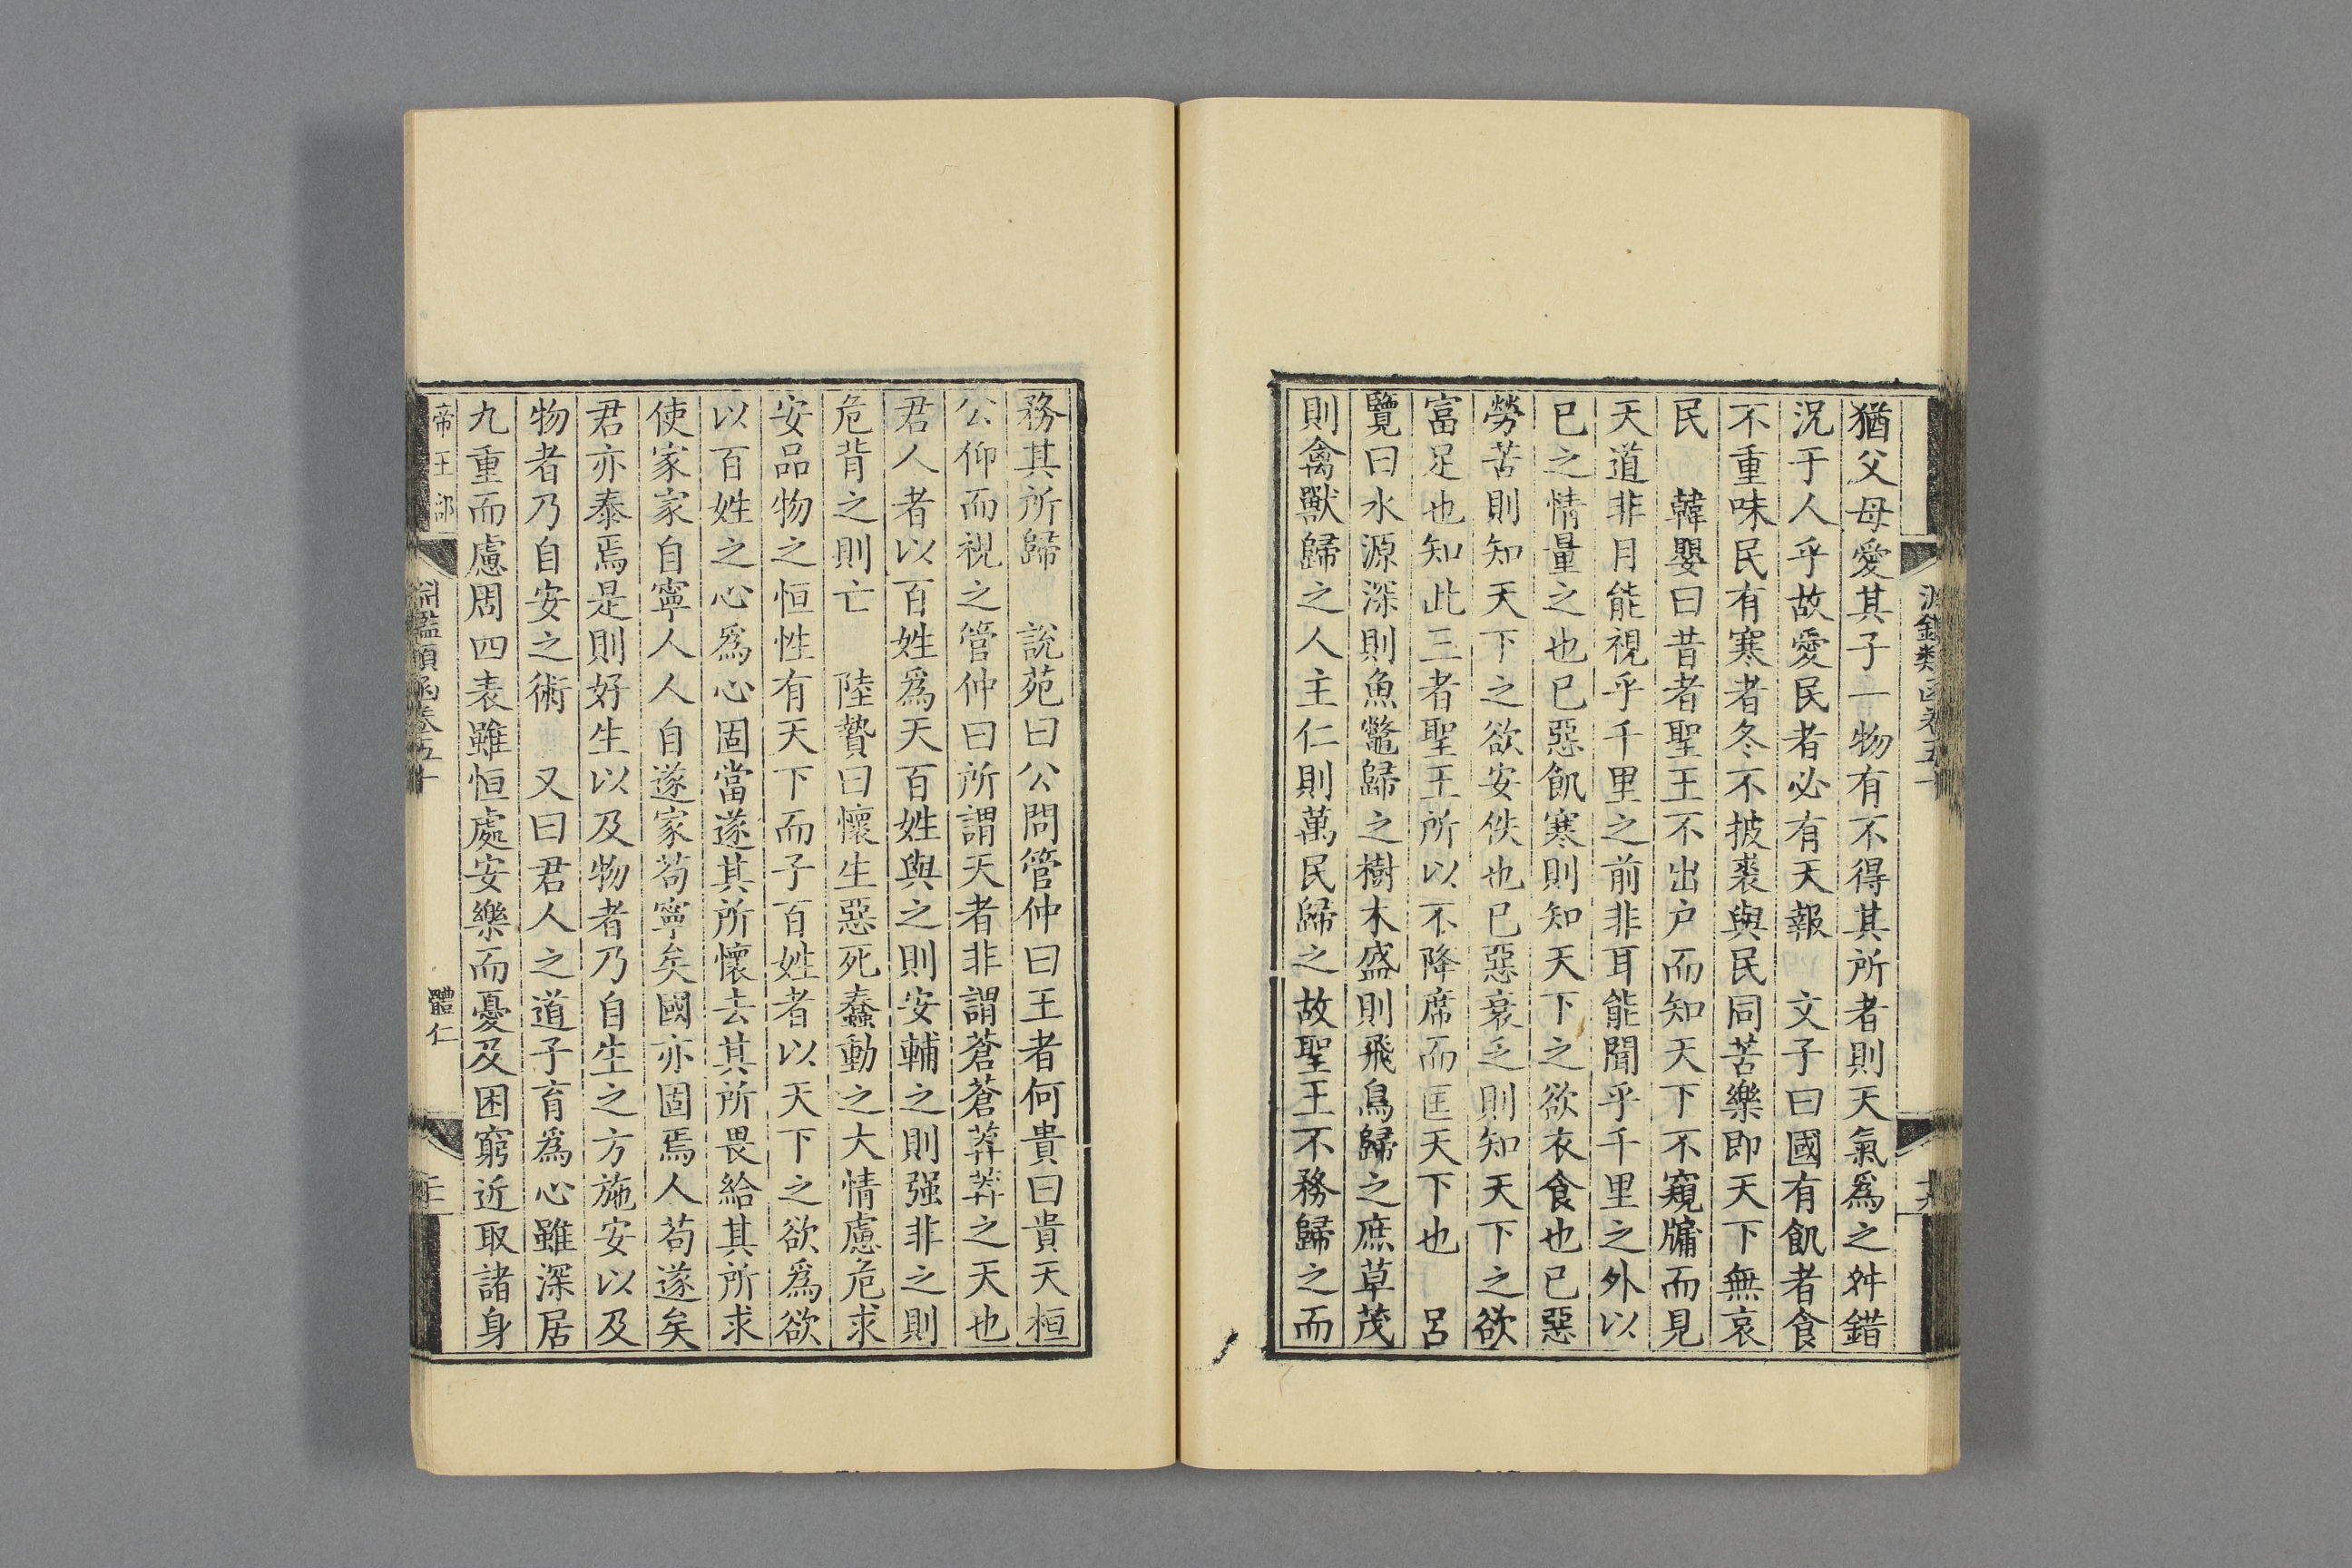 猶父母愛其子一物有不得其所者則天氣爲之舛錯
況于人乎故愛民者必有天報　文子曰國有飢者食
不重味民有寒者冬不披裘與民同苦樂即天下無哀
民　韓嬰曰昔者聖王不出户而知天下不窺牗而見
天道非目能視乎千里之前非耳能聞乎千里之外以
已之情量之也已惡飢寒則知天下之欲衣食也已惡
勞苦則知天下之欲安佚也已惡衰乏則知天下之欲
富足也知此三者聖王所以不降席而匡天下也　呂
覽曰水源深則魚鼈歸之樹木盛則飛鳥歸之庶草茂
則禽獸歸之人主仁則萬民歸之故聖王不務歸之而
務其所歸　說苑曰公問管仲曰王者何貴曰貴天桓
公仰而視之管仲曰所謂天者非謂蒼蒼莽莽之天也
君人者以百姓爲天百姓與之則安輔之則强非之則
危背之則亡　陸贄曰懷生惡死蠢動之大情慮危求
安品物之恒性有天下而子百姓者以天下之欲爲欲
以百姓之心爲心固當遂其所懷去其所畏給其所求
使家家自寧人人自遂家苟寧矣國亦固焉人苟遂矣
君亦泰焉是則好生以及物者乃自生之方施安以及
物者乃自安之術　又曰君人之道子育爲心雖深居
九重而慮周四表雖恒處安樂而憂及困窮近取諸身
帝王部
淵鑑類函卷五十
體仁